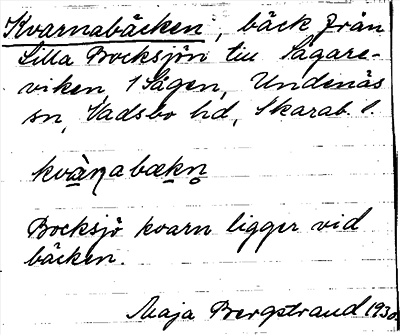 Kvarnabäcken, bäck från
Lilla Bocksjön till Sågare-
viken, i Sågen, Undenäs
sn, Vadsbo hd, Skarab. l.
kvàṇabækn̥
Bocksjö kvarn ligger vid
bäcken.
Maja Bergstrand 1930.